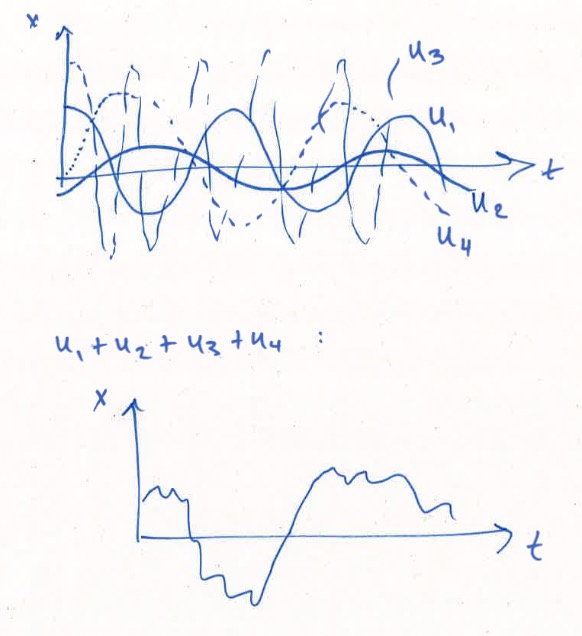 x
u₃
u₁
t
u₂
u₄
u₁ + u₂ + u₃ + u₄ :
x
t